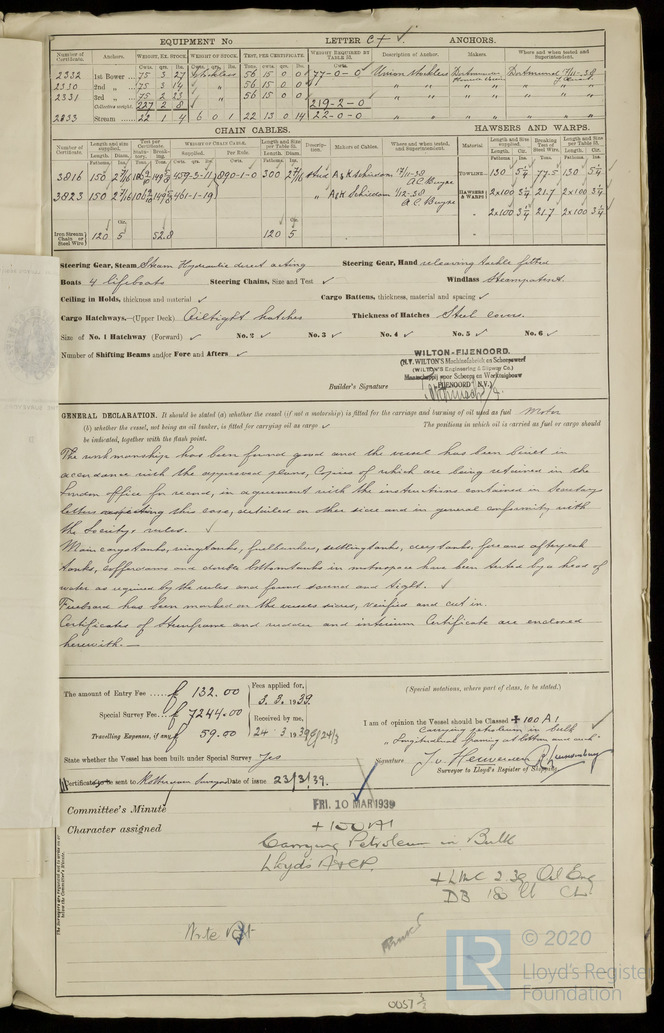 EQUIPMENT No LETTER C+ ✓ ANCHORS.
Number of Certificate. Anchors. WEIGHT, EX. STOCK. WEIGHT OF STOCK. TEST, PER CERTIFICATE. WEIGHT REQUIRED BY TABLE 53. Description of Anchor. Makers. Where and when tested and Superintendent.
2332 1st Bower 75 3 27 Stockless 56 15 0 0 77-0-0 Union Stockless Dortmunder Dortmund
2330 2nd „ 75 3 14 „ 56 15 0 0 „ „
2331 3rd „ 75 2 23 „ 56 15 0 0 „ „
Collective weight 227 2 8 219-2-0
2833 Stream 22 1 4 6 0 1 22 13 0 14 22-0-0
CHAIN CABLES. HAWSERS AND WARPS.
Number of Certificate. Length and size supplied. Test per Certificate. WEIGHT OF CHAIN CABLE. Length and Size per Table 53. Description. Makers of Cables. Where and when tested, and Superintendent. Material Length and Size supplied. Breaking Test of Steel Wire. Length and Size per Table 53.
3816 150 2 7/16 459-3-11 890-1-0 300 2 7/16 Stud A&K Schiedam 17/11-38 A.C. Buyse TOWLINE 130 5¼ 77.5 130 5¼
3823 150 2 7/16 461-1-19 „ A&K Schiedam 1/12-38 A.C. Buyse HAWSERS & WARPS 2x100 3¼ 21.7 2x100 3¼
„ 2x100 3¼ 21.7 2x100 3¼
Iron Stream Chain or Steel Wire 120 5 52.8 120 5
Steering Gear, Steam Steam Hydraulic direct acting Steering Gear, Hand relieving tackle fitted
Boats 4 lifeboats Steering Chains, Size and Test ✓ Windlass Steampatent.
Ceiling in Holds, thickness and material ✓ Cargo Battens, thickness, material and spacing ✓
Cargo Hatchways.—(Upper Deck) Oiltight hatches Thickness of Hatches Steel covers.
Size of No. 1 Hatchway (Forward) ✓ No. 2 ✓ No. 3 ✓ No. 4 ✓ No. 5 ✓ No. 6 ✓
Number of Shifting Beams and/or Fore and Afters ✓
WILTON-FIJENOORD.
(N.V. WILTON'S Machinefabriek en Scheepswerf
(WILTON'S Engineering & Slipway Co.)
Maatschappij voor Scheeps en Werktuigbouw
„FIJENOORD" N.V.)
Builder's Signature
GENERAL DECLARATION. It should be stated (a) whether the vessel (if not a motorship) is fitted for the carriage and burning of oil used as fuel Motor
(b) whether the vessel, not being an oil tanker, is fitted for carrying oil as cargo ✓ The positions in which oil is carried as fuel or cargo should
be indicated, together with the flash point.
The workmanship has been found good and the vessel has been built in
accordance with the approved plans, Copies of which are being retained in the
London office for record, in agreement with the instructions contained in Secretary
letters respecting this case, detailed on other side and in general conformity with
the Society, rules. ✓
Main cargotanks, wingtanks, fuelbunkers, settlingtanks, deeptanks, fore and afterpeak
tanks, cofferdams and double bottomtanks in motorspace have been tested by a head of
water as required by the rules and found sound and tight. ✓
Freeboard has been marked on the vessels sides, verified and cut in.
Certificates of Sternframe and rudder and interim Certificate are enclosed
herewith.—
The amount of Entry Fee £ 132.00 Fees applied for, 3. 3. 1939. (Special notations, where part of class, to be stated.)
Special Survey Fee £ 7244.00 Received by me, I am of opinion the Vessel should be Classed ✠ 100 A1
Travelling Expenses, if any £ 59.00 24-3 1939 24/3 Carrying petroleum in bulk
„Longitudinal framing at bottom and deck"
State whether the Vessel has been built under Special Survey Yes Signature
Surveyor to Lloyd's Register of Shipping
Certificate to be sent to Rotterdam Surveyors Date of issue 23/3/39.
Committee's Minute FRI. 10 MAR 1939
Character assigned + 100 A1
Carrying Petroleum in Bulk
Lloyds A&CP.
+ LMC 2.39 Oil Eng
DB 180 lb CL
LR © 2020
Lloyd's Register
Foundation